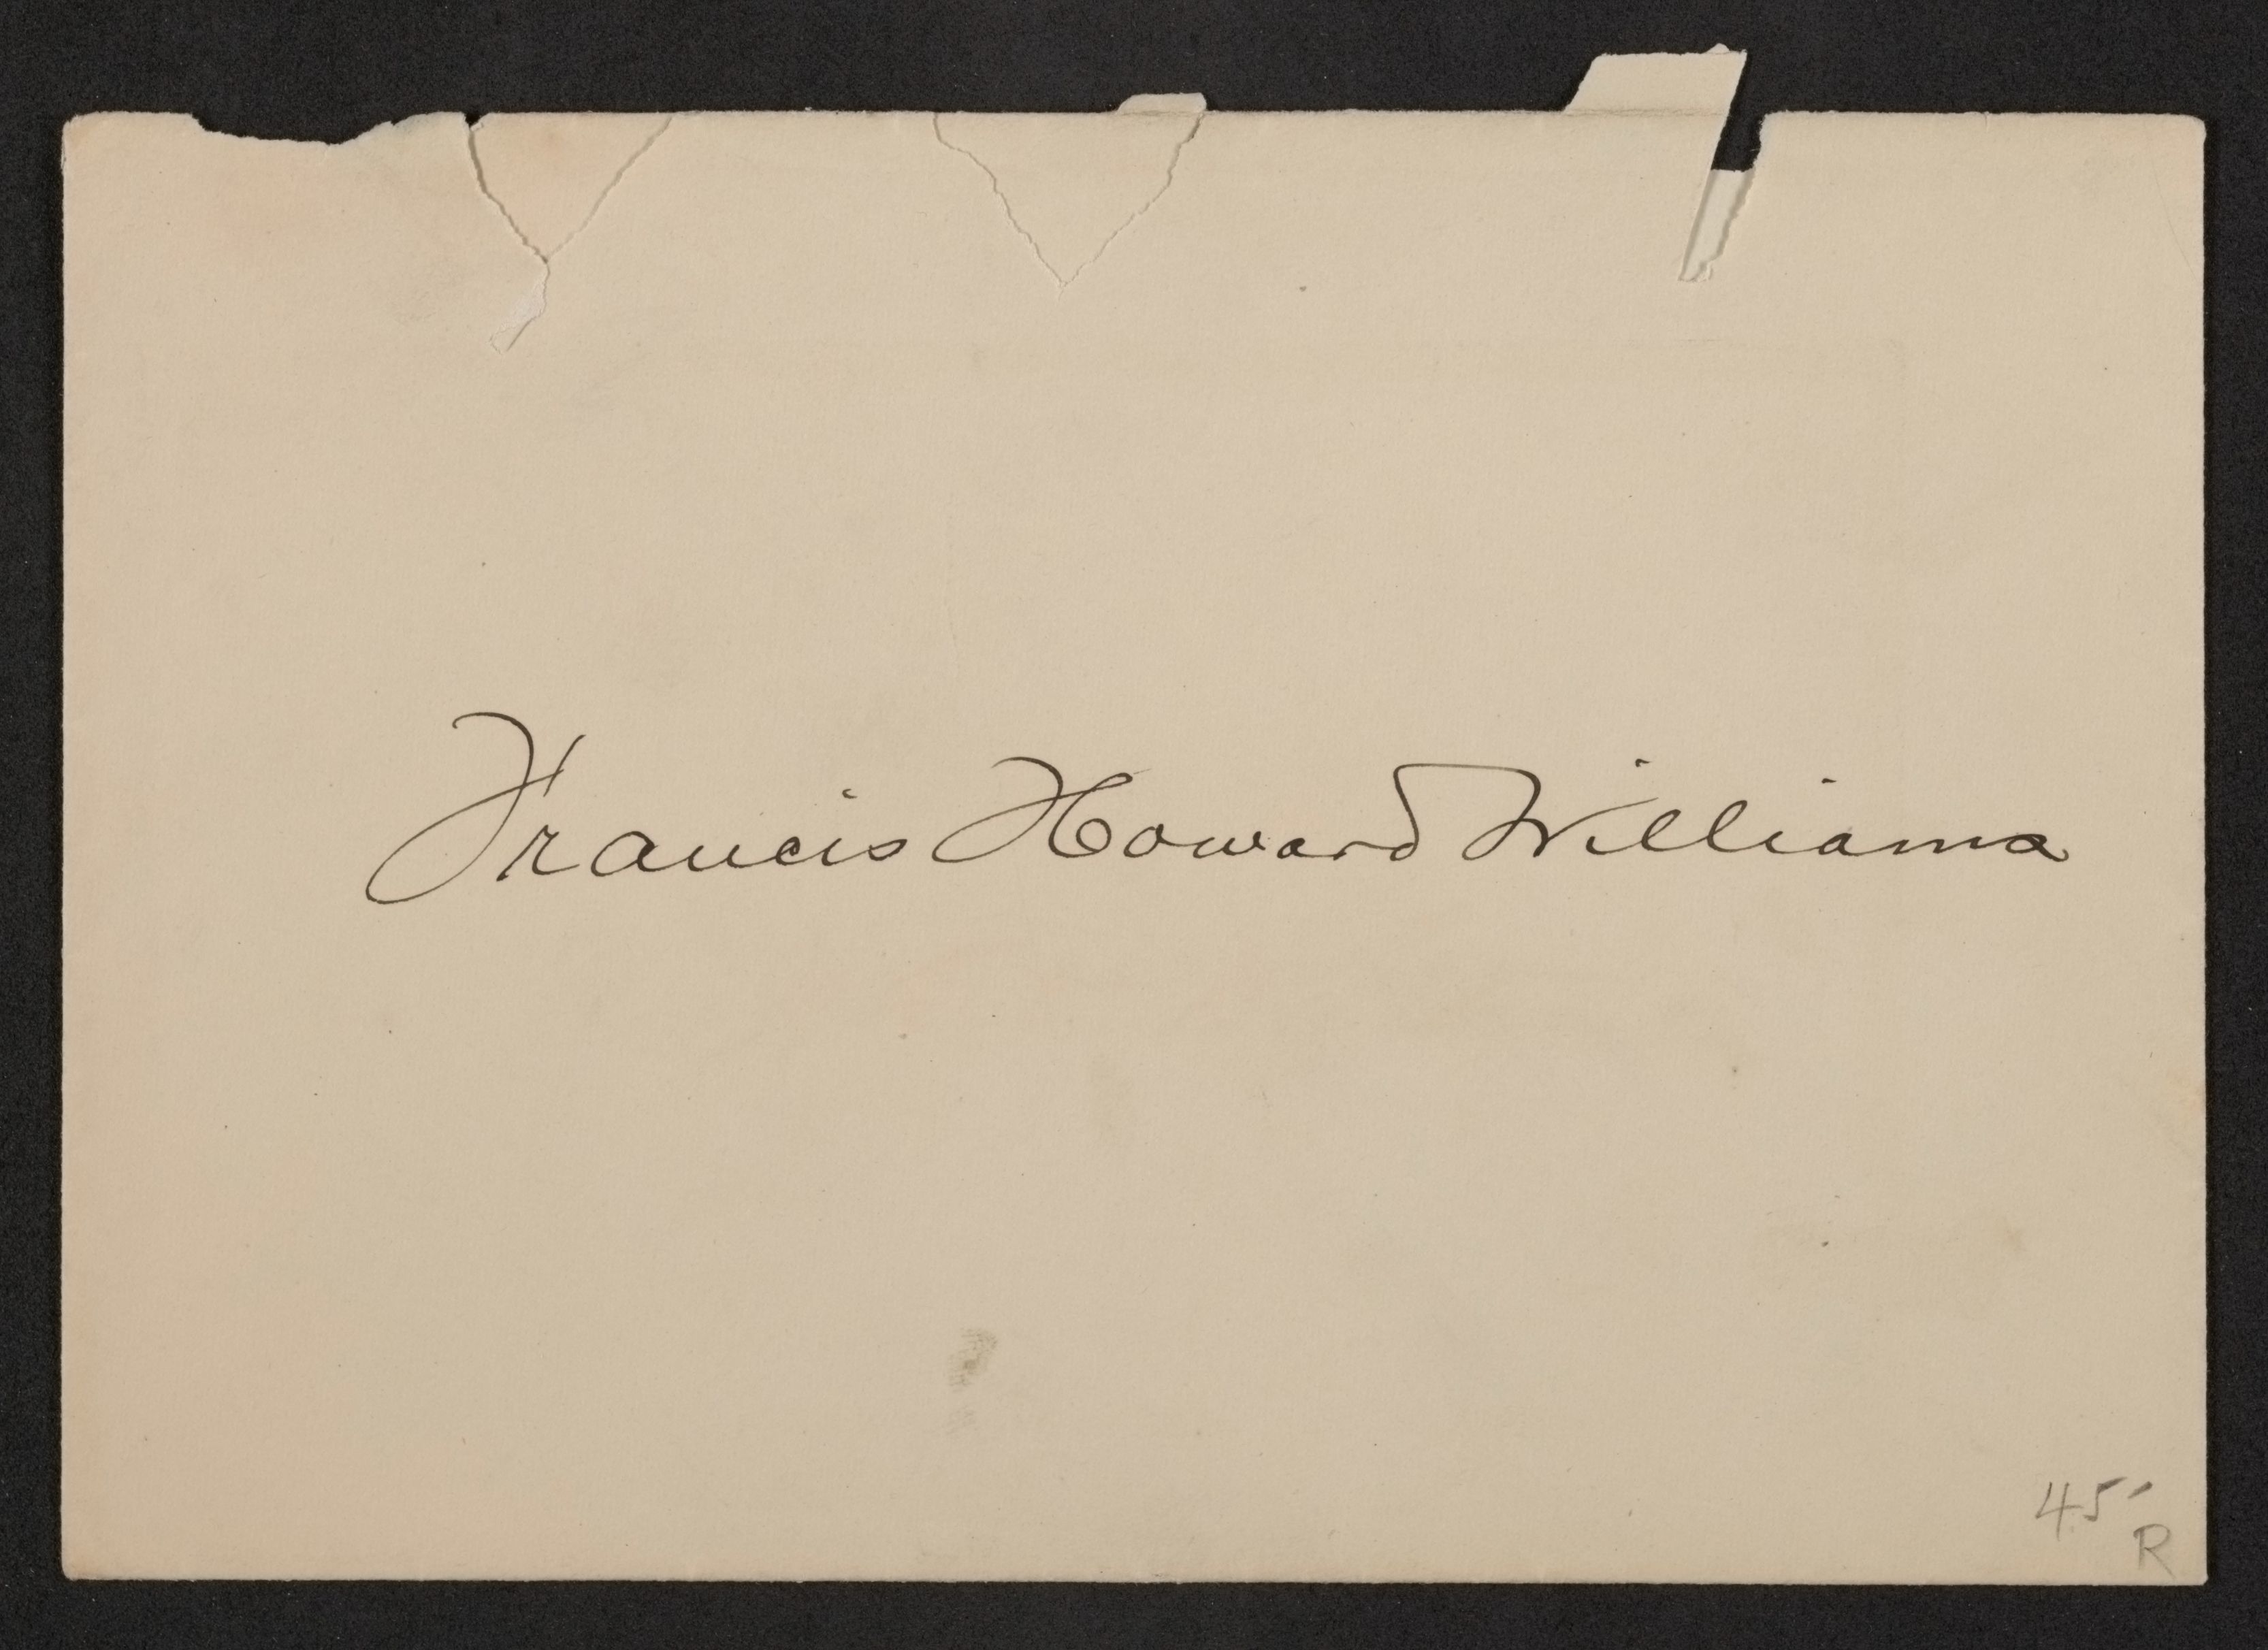 Francis Howard Williams
45
R